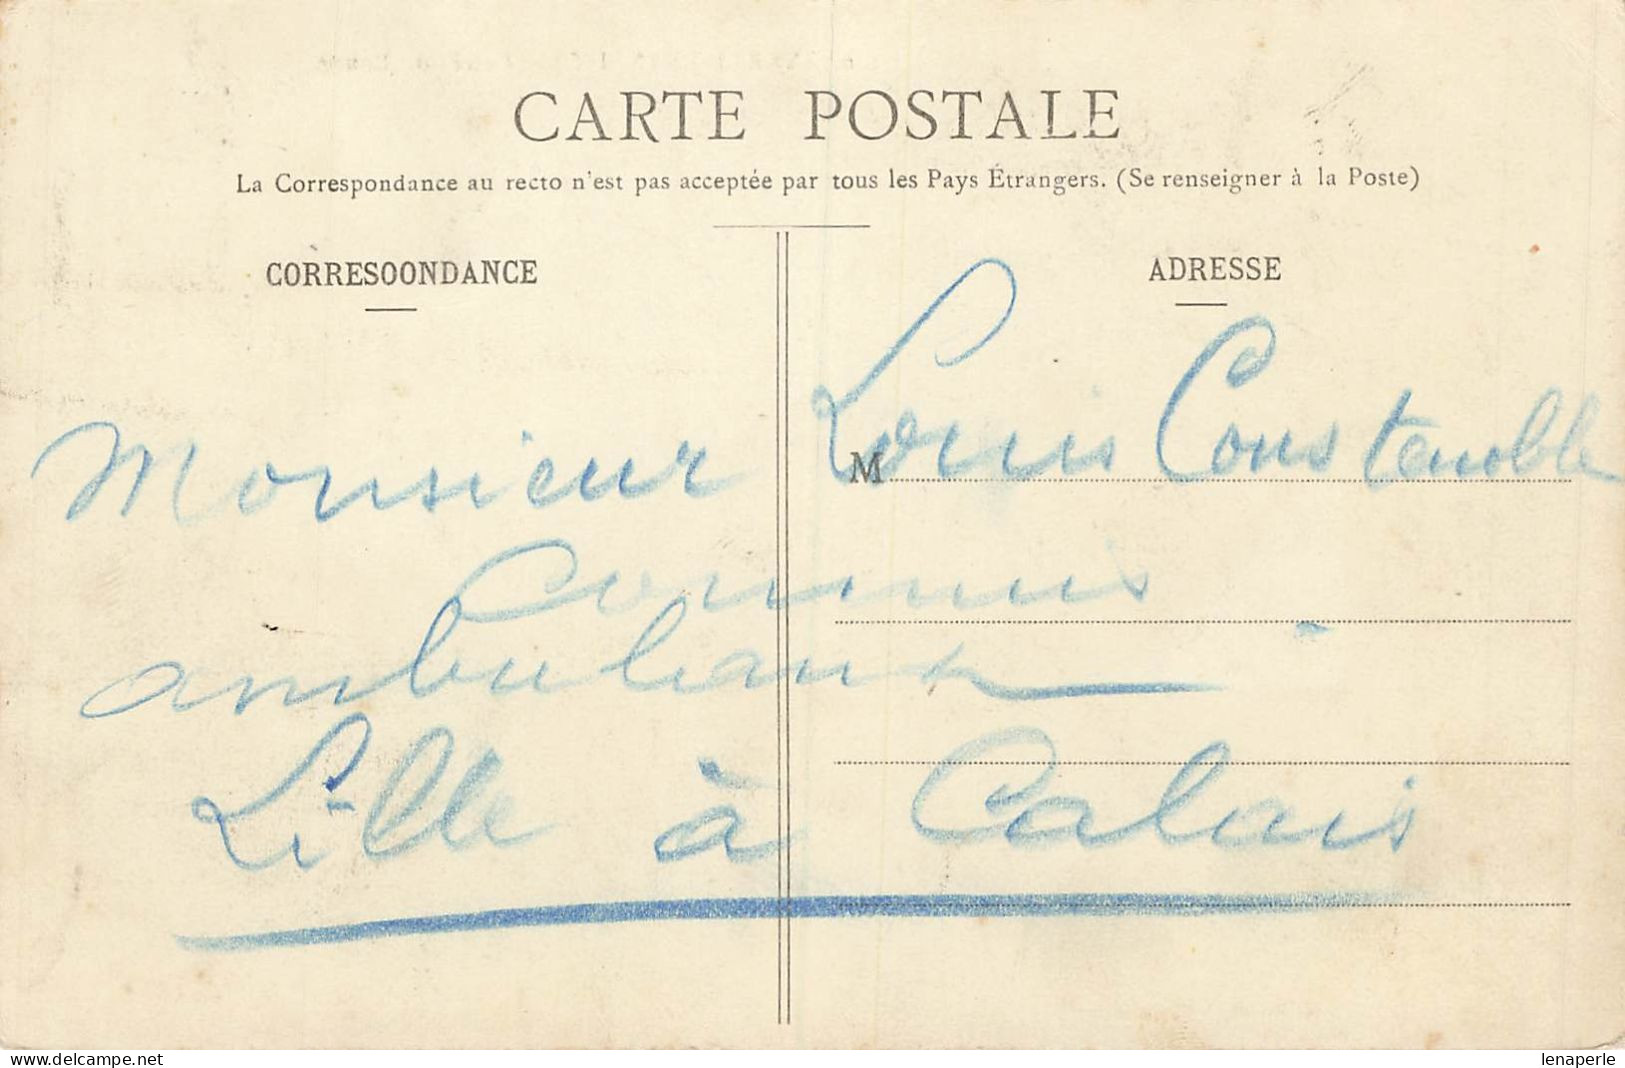 CARTE POSTALE
La Correspondance au recto n'est pas acceptée par tous les Pays Étrangers. (Se renseigner à la Poste)
CORRESOONDANCE
ADRESSE
M
Monsieur Louis Constenoble
Commis
ambulant
Lille à Calais
www.delcampe.net
lenaperle